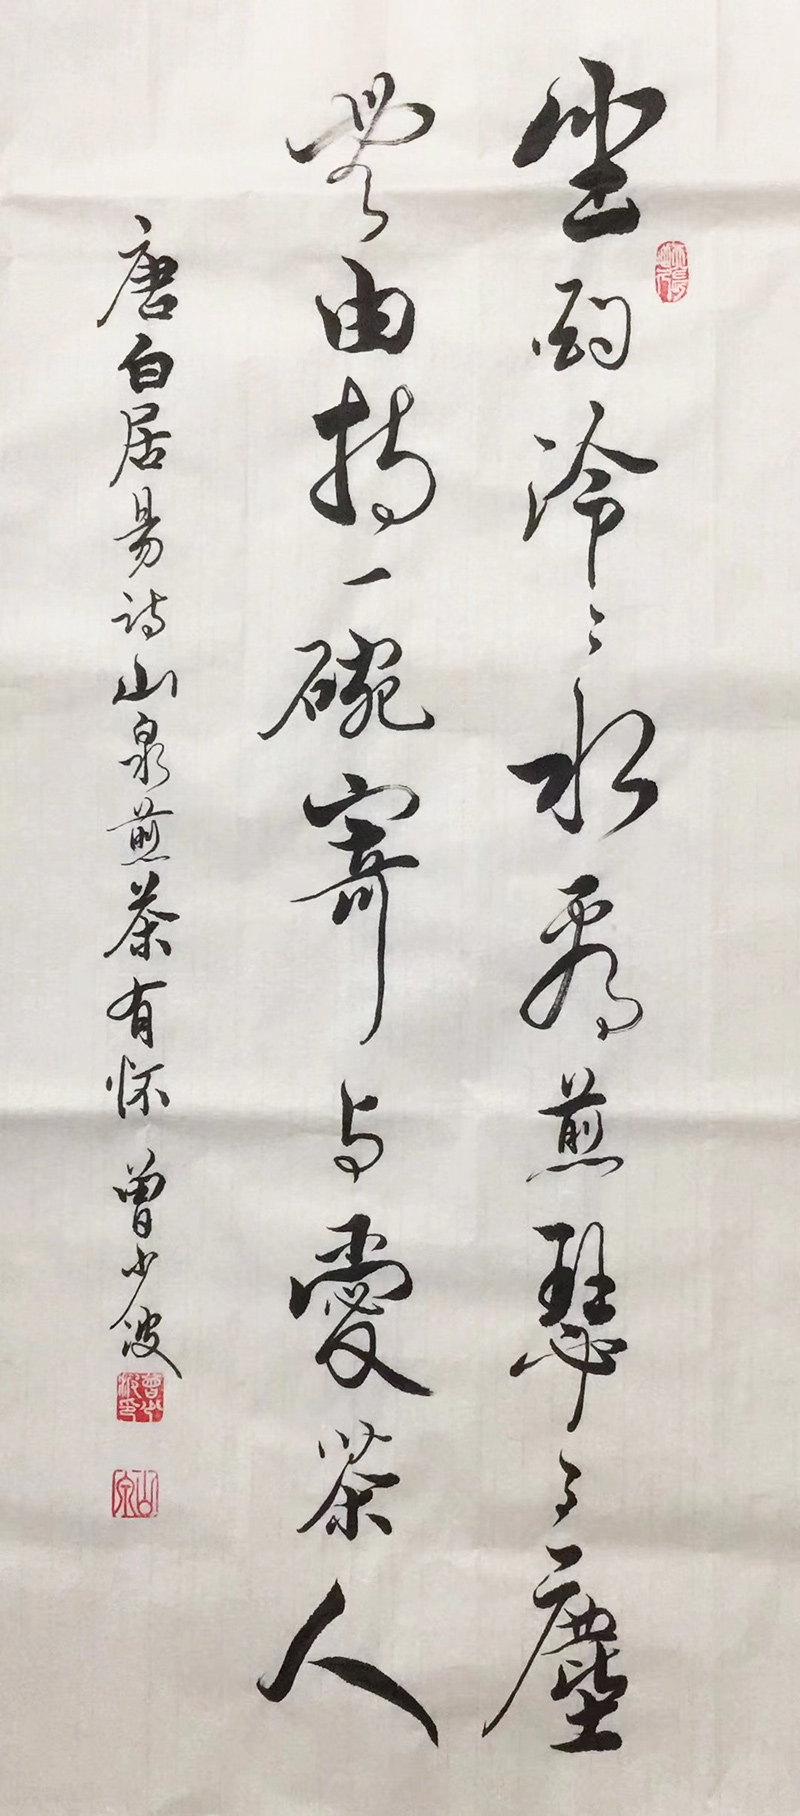 坐酌泠〻水看煎瑟〻塵
無由持一碗寄与愛茶人
唐白居易诗山泉煎茶有怀 曾少波